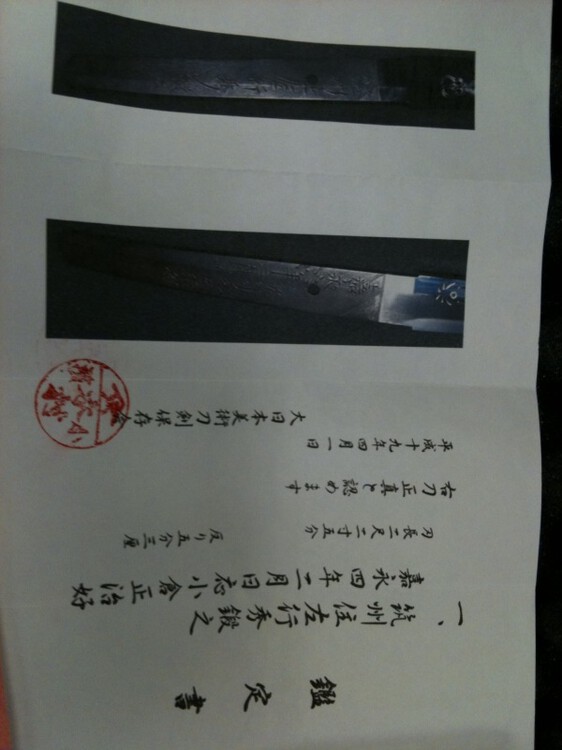 鑑定書
一、筑州住左行秀鍛之
嘉永四年二月日応小倉正治好
刃長二尺二寸五分　反り五分三厘
右刀正真と認めます
平成十九年四月一日
大日本美術刀剣保存会